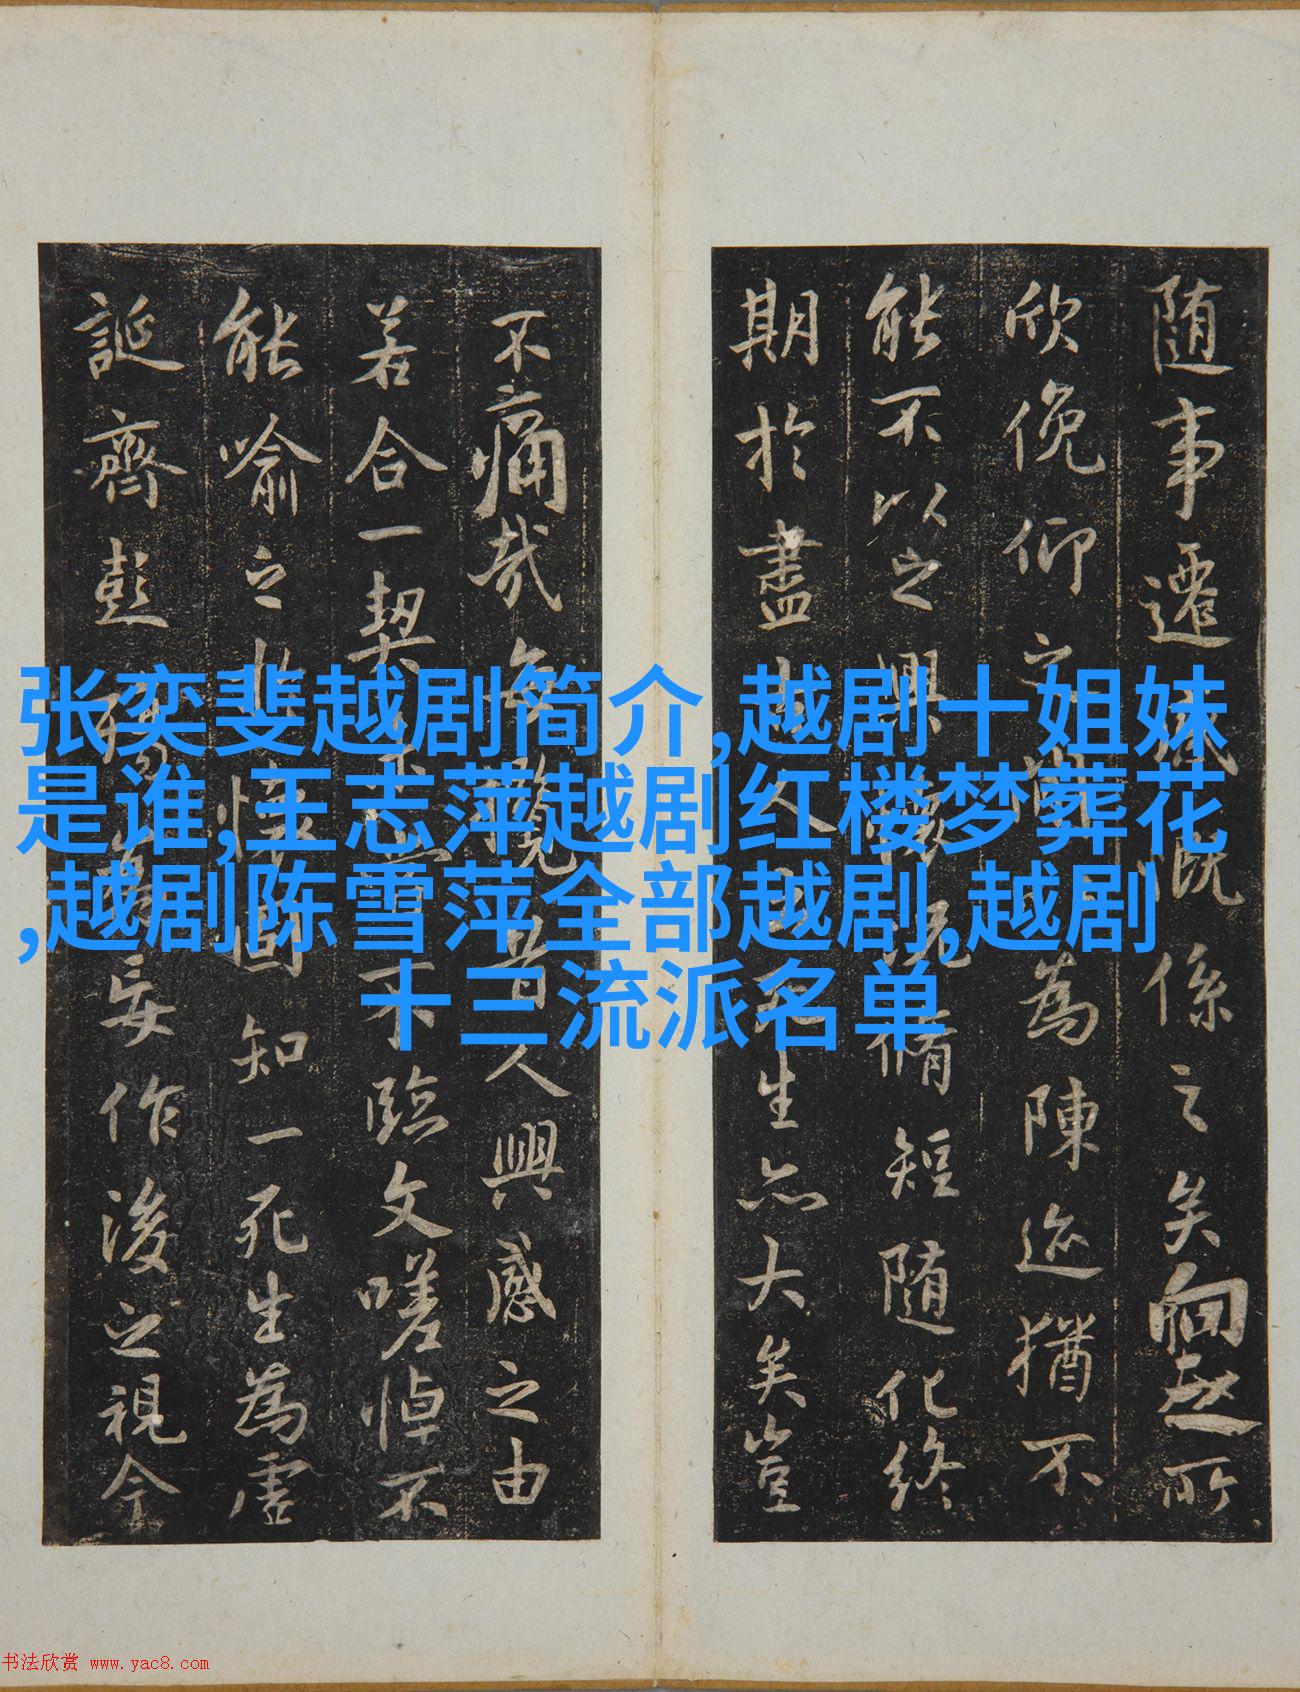 隨事遷感慨係之矣向之所
欣俛仰之間以為陳迹猶不
能不以之興懷況脩短隨化終
期於盡古人云死生亦大矣豈
不痛哉每攬昔人興感之由
若合一契未嘗不臨文嗟悼不
能喻之於懷固知一死生為虛
誕齊彭殤為妄作後之視今
张奕斐越剧简介,越剧十姐妹
是谁,王志萍越剧红楼梦葬花
,越剧陈雪萍全部越剧,越剧
十三流派名单
书法欣赏 www.yac8.com